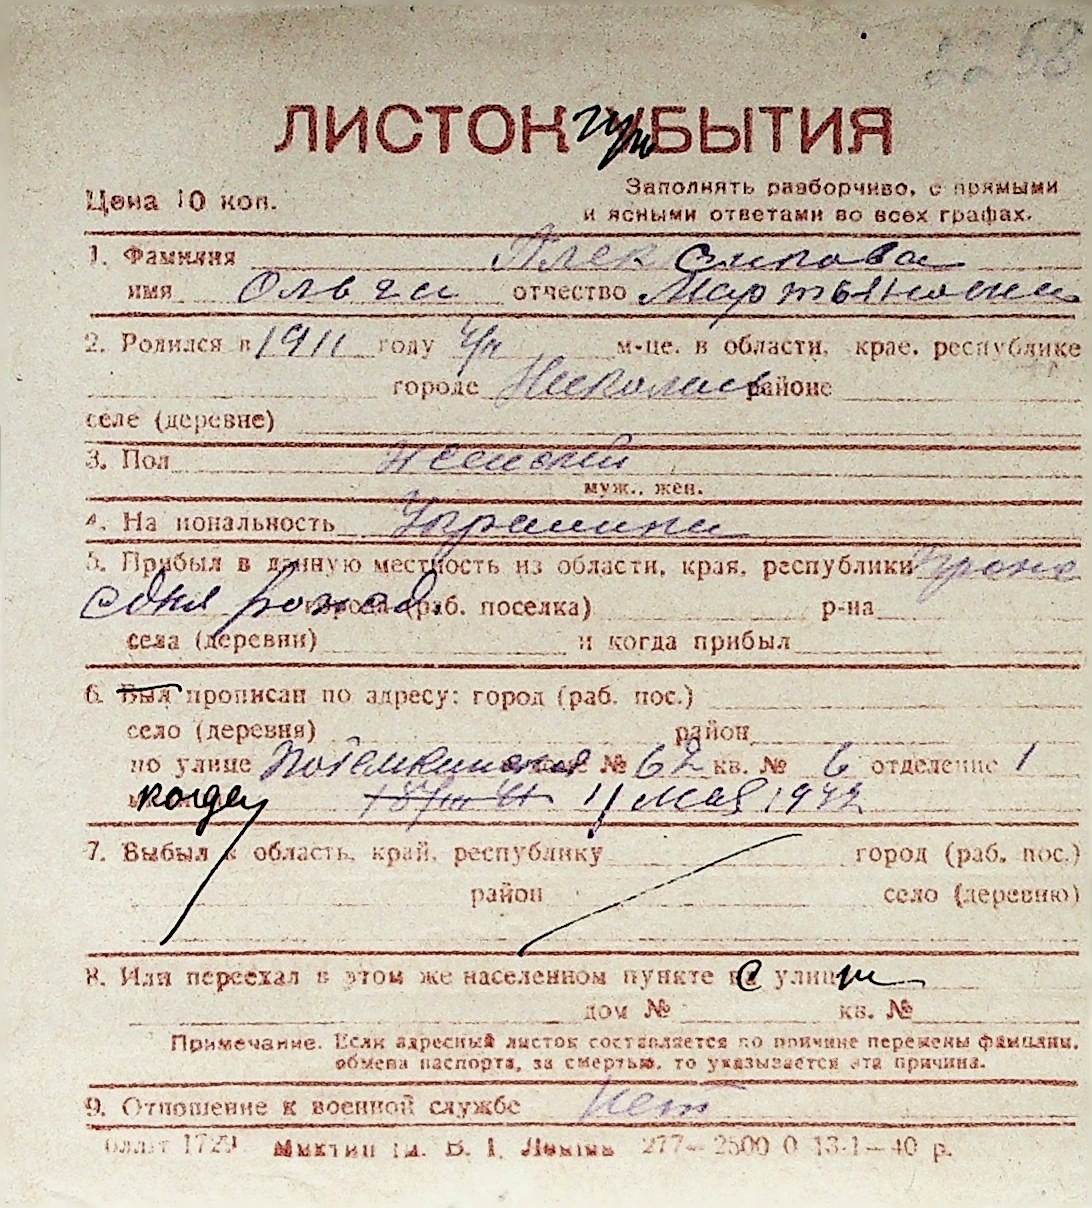 2258
ЛИСТОК при УБЫТИЯ
Цена 10 коп.
Заполнять разборчиво, с прямыми
и ясными ответами во всех графах.
1. Фамилия
имя Ольга отчество Мартьяновна
2. Родился в 1911 году м-це. в области, крае, республике
городе Николаев районе
селе (деревне)
3. Пол Женский
муж., жен.
4. На иональность Украинка
5. Прибыл в данную местность из области, края, республики Прожи
с дня рожд. города (раб. поселка) р-на
села (деревни) и когда прибыл
6. Был прописан по адресу: город (раб. пос.)
село (деревня) район
по улице Потемкинская № 62 кв. № 6 отделение 1
когда 11 мая 1942
7. Выбыл в область, край, республику город (раб. пос.)
район село (деревню)
8. Или переехал в этом же населенном пункте с улицы
дом № кв. №
Примечание. Если адресный листок составляется по причине перемены фамилии,
обмена паспорта, за смертью, то указывается эта причина.
9. Отношение к военной службе Нет
1729 им. В. І. Леніна 277—2500 0 13-1—40 р.